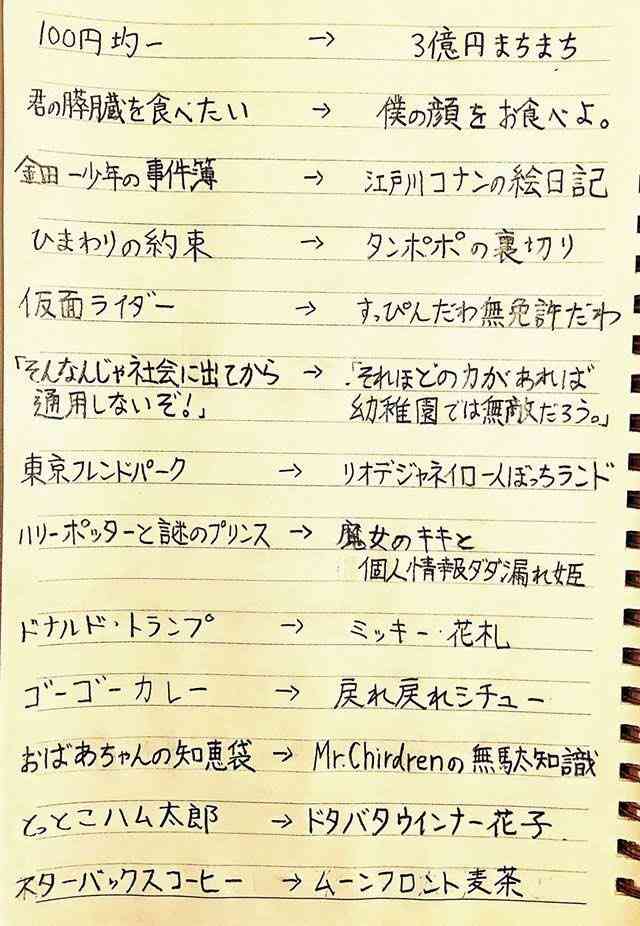 100円均一 → 3億円まちまち
君の膵臓を食べたい → 僕の顔をお食べよ。
金田一少年の事件簿 → 江戸川コナンの絵日記
ひまわりの約束 → タンポポの裏切り
仮面ライダー → すっぴんだわ無免許だわ
「そんなんじゃ社会に出てから → 「それほどの力があれば
通用しないぞ!」 幼稚園では無敵だろう。」
東京フレンドパーク → リオデジャネイロ一人ぼっちランド
ハリーポッターと謎のプリンス → 魔女のキキと
個人情報ダダ漏れ姫
ドナルド・トランプ → ミッキー・花札
ゴーゴーカレー → 戻れ戻れシチュー
おばあちゃんの知恵袋 → Mr.Chirdrenの無駄知識
とっとこハム太郎 → ドタバタウインナー花子
スターバックスコーヒー → ムーンフロント麦茶